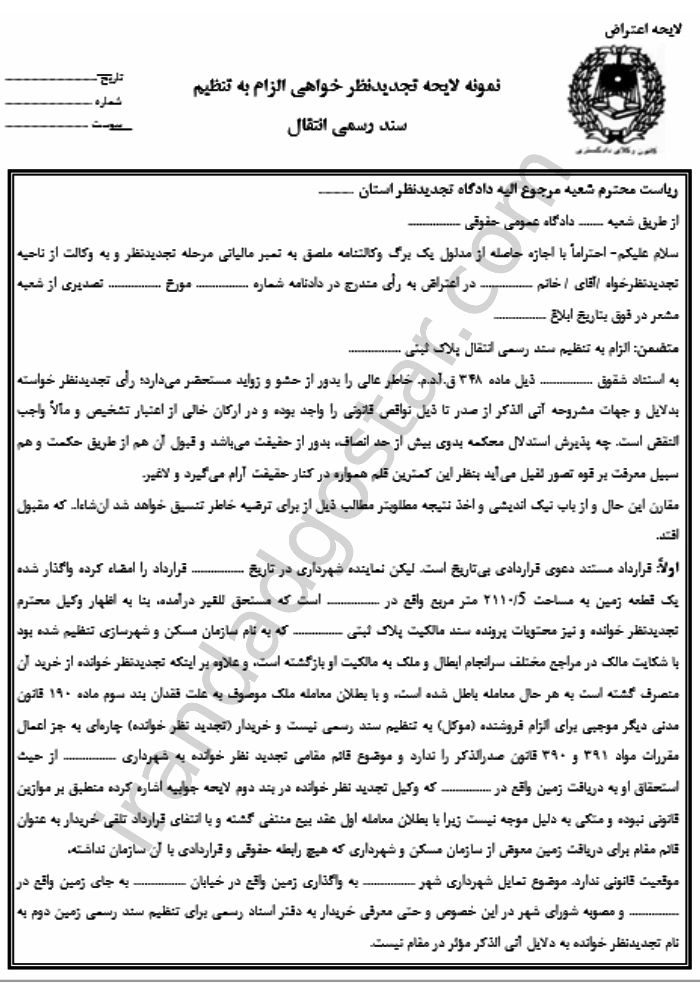 لایحه اعتراض
نمونه لایحه تجدیدنظر خواهی الزام به تنظیم
سند رسمی انتقال
تاریخ
شماره
پیوست
کانون وکلای دادگستری
ریاست محترم شعبه مرجوع الیه دادگاه تجدیدنظر استان ..........
از طریق شعبه ....... دادگاه عمومی حقوقی ...............
سلام علیکم- احتراماً با اجازه حاصله از مدلول یک برگ وکالتنامه ملصق به تمبر مالیاتی مرحله تجدیدنظر و به وکالت از ناحیه
تجدیدنظرخواه /آقای / خانم ............... در اعتراض به رأی مندرج در دادنامه شماره ............... مورخ ............... تصدیری از شعبه
مشعر در فوق بتاریخ ابلاغ ...............
متضمن: الزام به تنظیم سند رسمی انتقال پلاک ثبتی ...............
به استناد شقوق ............... ذیل ماده ۳۴۸ ق.آ.د.م. خاطر عالی را بدور از حشو و زواید مستحضر می‌دارد؛ رأی تجدیدنظر خواسته
بدلایل و جهات مشروحه آتی الذکر از صدر تا ذیل نواقص قانونی را واجد بوده و در ارکان خالی از اعتبار تشخیص و مآلاً واجب
النقض است. چه پذیرش استدلال محکمه بدوی بیش از حد انصاف، بدور از حقیقت می‌باشد و قبول آن هم از طریق حکمت و هم
سبیل معرفت بر قوه تصور ثقیل می‌آید بنظر این کمترین قلم همواره در کنار حقیقت آرام می‌گیرد و لاغیر.
مقارن این حال و از باب نیک اندیشی و اخذ نتیجه مطلوبتر مطالب ذیل از برای ترضیه خاطر تنسیق خواهد شد ان‌شاءا.. که مقبول
افتد.
اولاً: قرارداد مستند دعوی قراردادی بی‌تاریخ است. لیکن نماینده شهرداری در تاریخ ............... قرارداد را امضاء کرده واگذار شده
یک قطعه زمین به مساحت ۲۱۱۰/5 متر مربع واقع در ............... است که مستحق للغیر درآمده، بنا به اظهار وکیل محترم
تجدیدنظر خوانده و نیز محتویات پرونده سند مالکیت پلاک ثبتی ............... که به نام سازمان مسکن و شهرسازی تنظیم شده بود
با شکایت مالک در مراجع مختلف سرانجام ابطال و ملک به مالکیت او بازگشته است، و علاوه بر اینکه تجدیدنظر خوانده از خرید آن
منصرف گشته است به هر حال معامله باطل شده است، و با بطلان معامله ملک موصوف به علت فقدان بند سوم ماده ۱۹۰ قانون
مدنی دیگر موجبی برای الزام فروشنده (موکل) به تنظیم سند رسمی نیست و خریدار (تجدید نظر خوانده) چاره‌ای به جز اعمال
مقررات مواد ۳۹۱ و ۳۹۰ قانون صدرالذکر را ندارد و موضوع قائم مقامی تجدید نظر خوانده به شهرداری ............... از حیث
استحقاق او به دریافت زمین واقع در ............... که وکیل تجدید نظر خوانده در بند دوم لایحه جوابیه اشاره کرده منطبق بر موازین
قانونی نبوده و متکی به دلیل موجه نیست زیرا با بطلان معامله اول عقد بیع منتفی گشته و با انتفای قرارداد تلقی خریدار به عنوان
قائم مقام برای دریافت زمین معوض از سازمان مسکن و شهرداری که هیچ رابطه حقوقی و قراردادی با آن سازمان نداشته،
موقعیت قانونی ندارد. موضوع تمایل شهرداری شهر ............... به واگذاری زمین واقع در خیابان ............... به جای زمین واقع در
............... و مصوبه شورای شهر در این خصوص و حتی معرفی خریدار به دفتر اسناد رسمی برای تنظیم سند رسمی زمین دوم به
نام تجدیدنظر خوانده به دلایل آتی الذکر مؤثر در مقام نیست.
irandadgostar.com